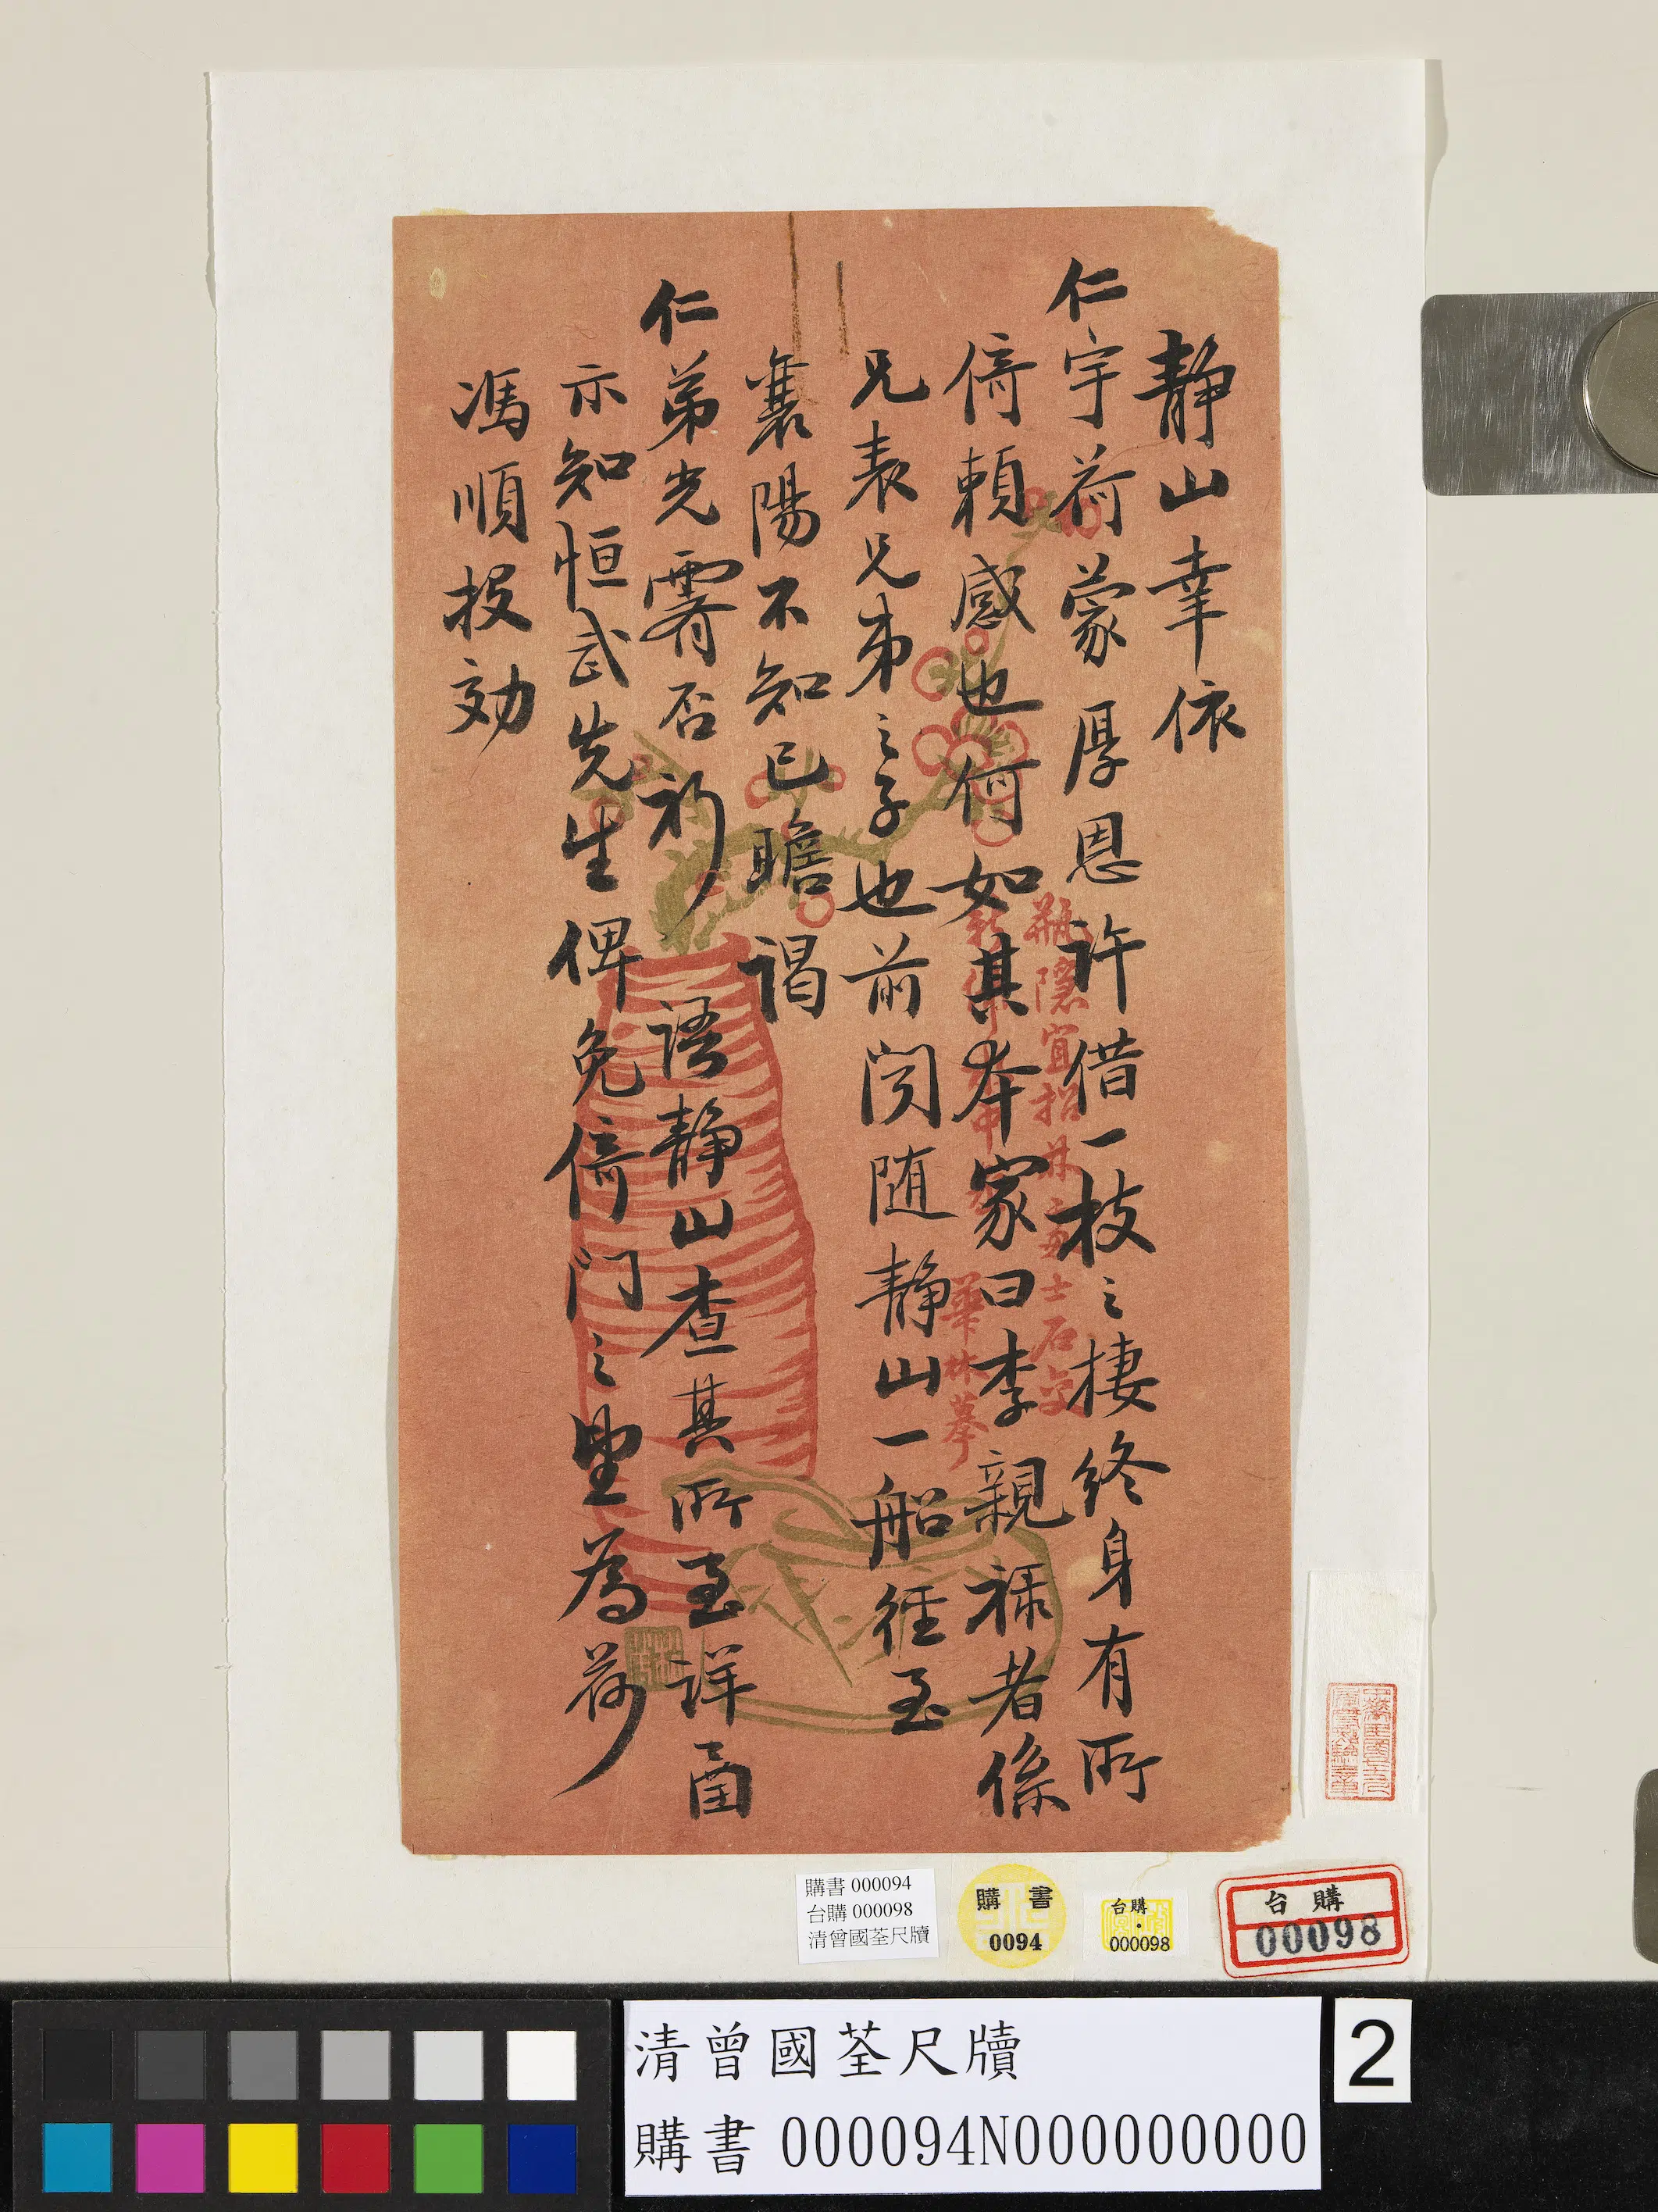 靜山幸依
仁宇荷蒙厚恩許借一枝之棲終身有所
倚賴感也何如其本家曰李親祿者係
兄表兄弟之子也前閱隨靜山一船徑至
襄陽不知已瞻謁
仁弟光霽否祈語靜山查其所至詳函
示知恒武先生俾免倚門之望為荷
馮順投効
瓶隱宜招 士石交
華林摹
購書 000094
台購 000098
清曾國荃尺牘
購書
0094
台購
000098
台購
00098
清曾國荃尺牘
購書 000094N000000000
2